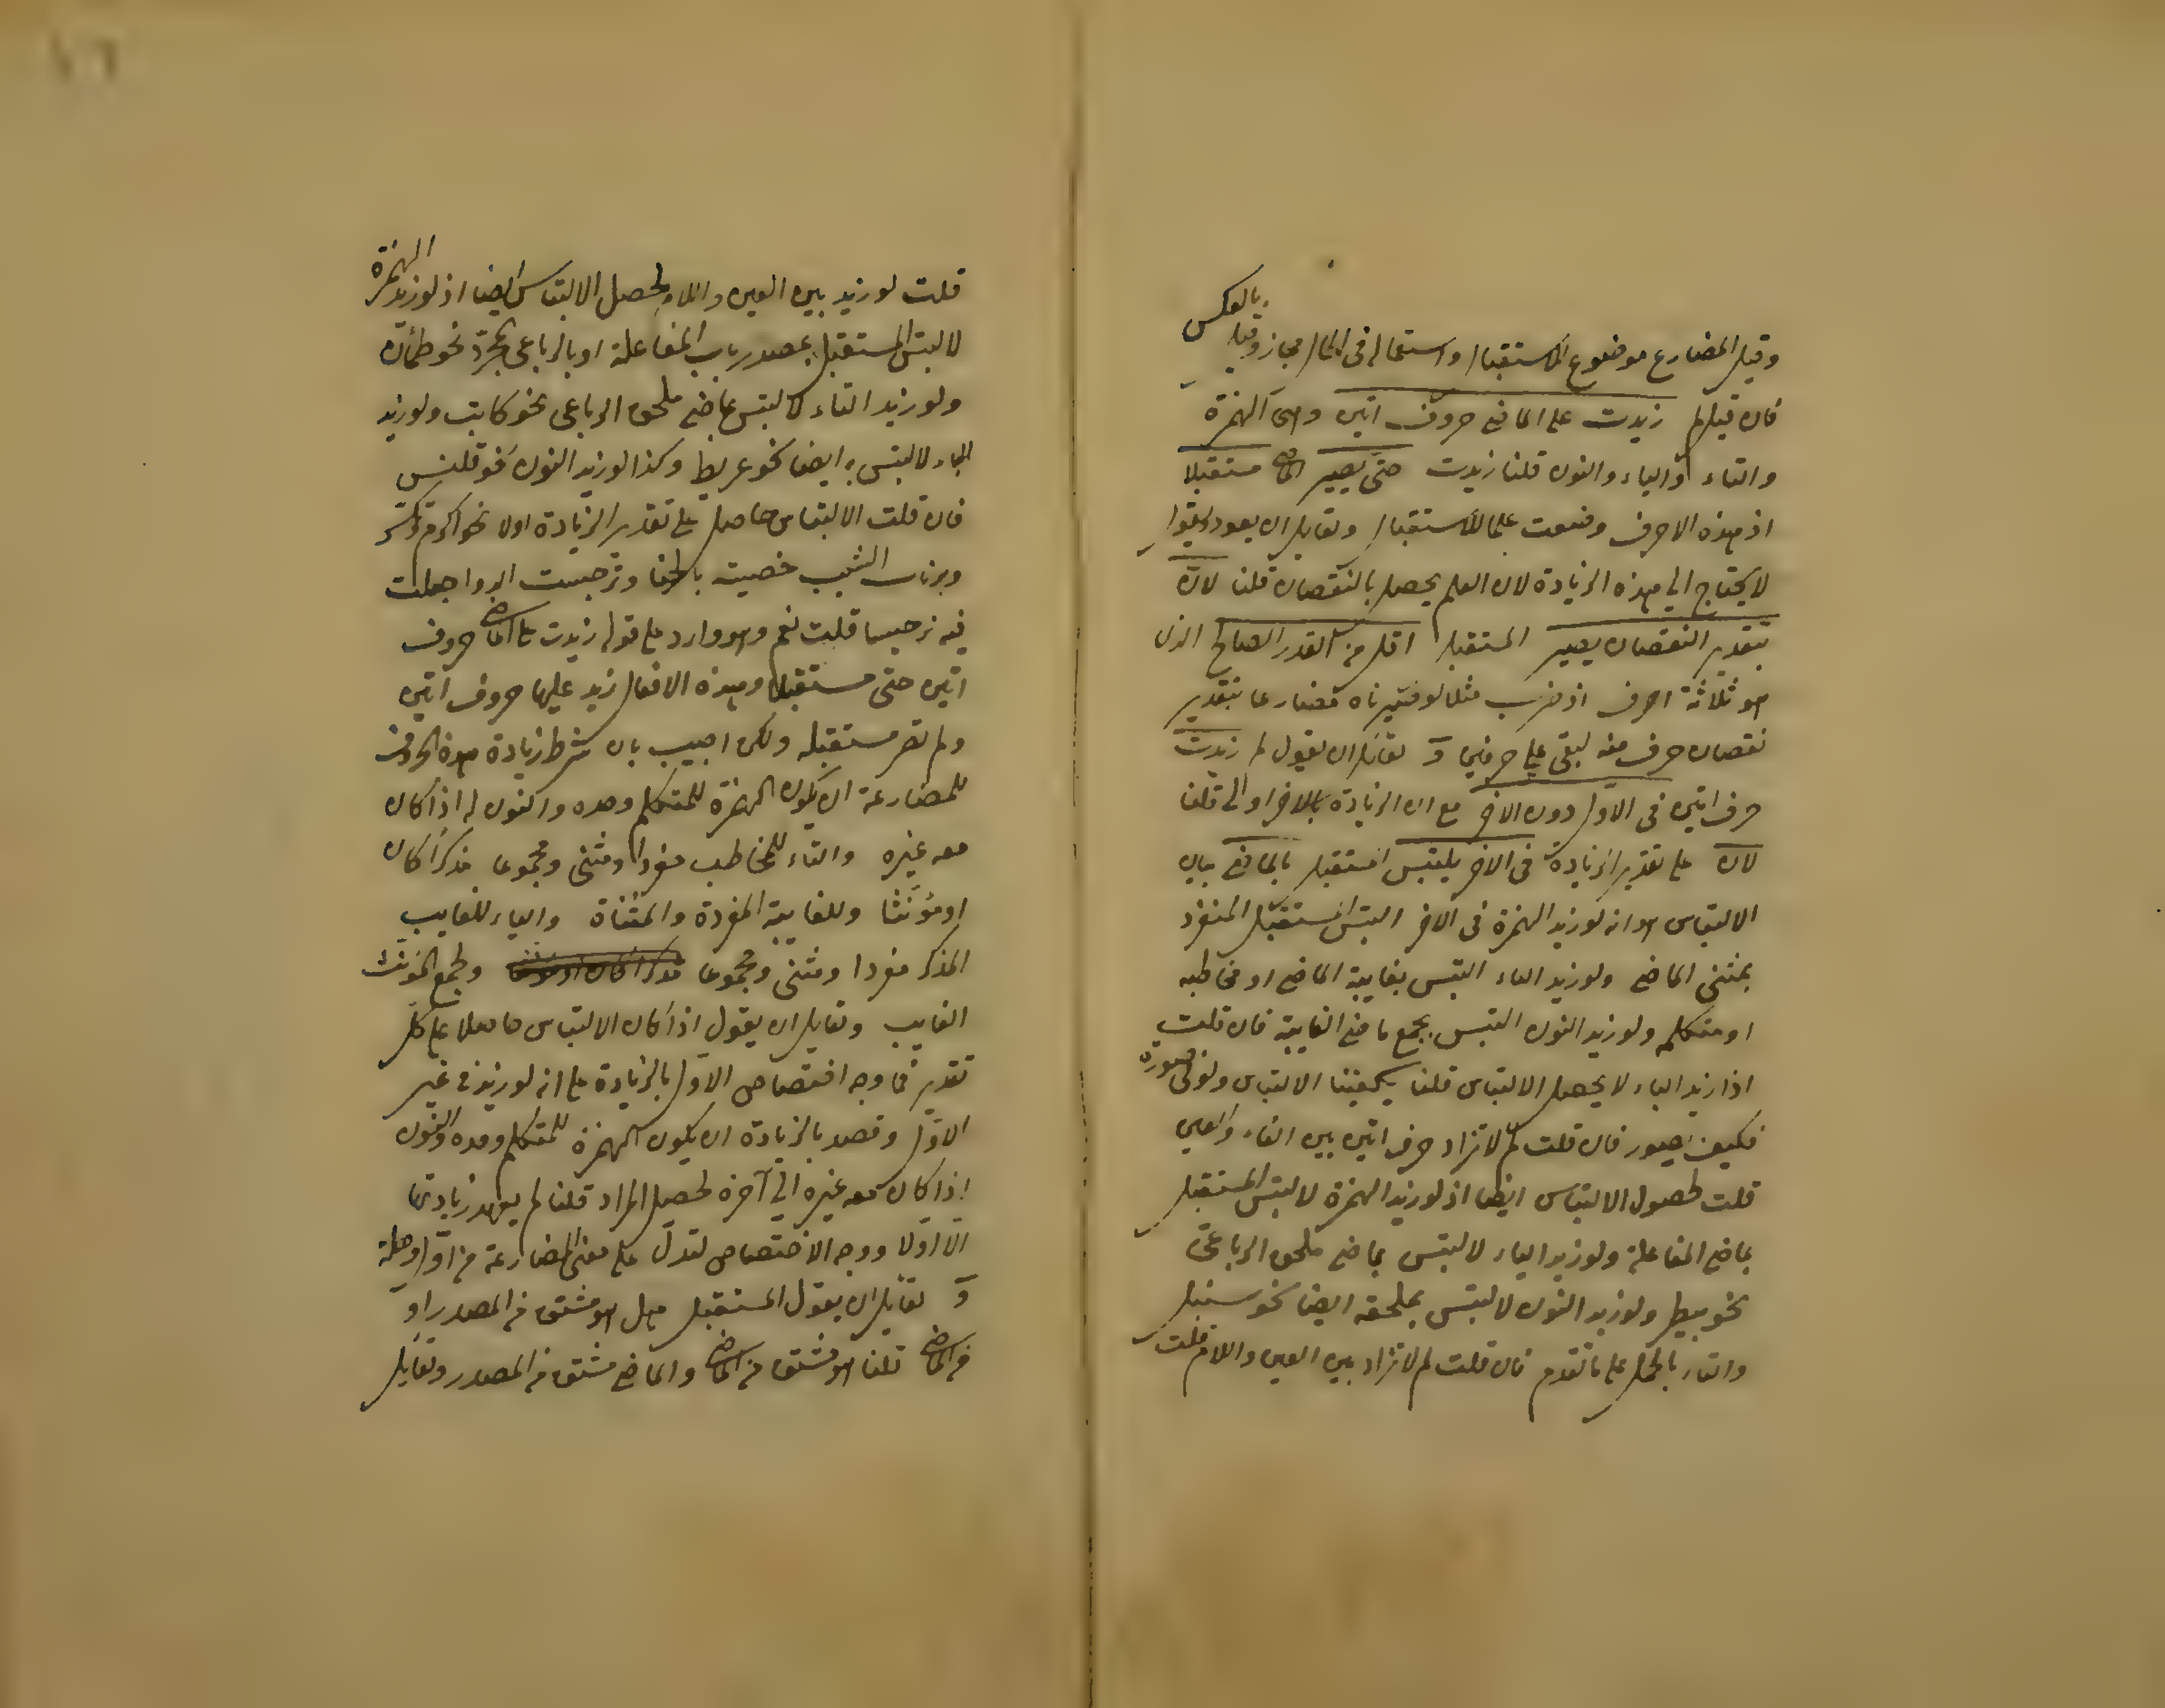 وقيل المضارع موضوع للاستقبال واستعماله فى الحال مجاز وقيل بالعكس
فان قيل لم زيدت على الماضى حروف اتين وهى الهمزة
والتاء والياء والنون قلنا زيدت حتى يصير الماضى مستقبلا
اذ هذه الاحرف وضعت علما للاستقبال ولقايل ان يعود ويقول
لا يحتاج الى هذه الزيادة لان العلم يحصل بالنقصان قلنا لان
بتقدير النقصان يصير المستقبل اقل من القدر الصالح الذى
هو ثلاثة احرف اذ ضرب مثلا لو صيرناه مضارعا بتقدير
نقصان حرف منه لبقى على حرفين و لقايل ان يقول لم زيدت
حرف اتين فى الاول دون الاخر مع ان الزيادة بالاخر اولى قلنا
لان على تقدير الزيادة فى الاخر يلتبس المستقبل بالماضى بيان
الالتباس هو انه لو زيد الهمزة فى الاخر التبس المستقبل المنفرد
بمثنى الماضى ولو زيد التاء التبس بغايبة الماضى او مخاطبه
او متكلمه ولو زيد النون التبس بجمع ماضى الغايبة فان قلت
اذا زيد الياء لا يحصل الالتباس قلنا يكفينا الالتباس ولو فى صورة
فكيف بصور فان قلت لم لا تزاد حرف اتين بين الفاء والعين
قلت لحصول الالتباس ايضا اذ لو زيد الهمزة لالتبس المستقبل
بماضى المفاعلة ولو زيد الياء لالتبس بماضى ملحق الرباعى
نحو بيطر ولو زيد النون لالتبس بملحقه ايضا نحو سنبل
والتاء بالحمل على ما تقدم فان قلت لم لا تزاد بين العين واللام قلت
قلت لو زيد بين العين واللام لحصل الالتباس ايضا اذ لو زيد الهمزة
لالتبس المستقبل بمصدر باب المفاعلة او بالرباعى المجرد نحو طمأن
ولو زيد التاء لالتبس بماضى ملحق الرباعى نحو كابتب ولو زيد
الياء لالتبس به ايضا نحو عريط وكذا لو زيد النون نحو قلنس
فان قلت الالتباس حاصل على تقدير الزيادة اولا نحو اكرم وتكسر
ويرنأت الشيب خضبته بالحنا ونرجست الدواء جعلت
فيه نرجسا قلت نعم وهو وارد على قوله زيدت على الماضى حروف
اتين حتى مستقبلا وهذه الافعال زيد عليها حروف اتين
ولم تصر مستقبله ولكن اجيب بان شرط زيادة هذه الحروف
للمضارعة ان يكون الهمزة للمتكلم وحده والنون له اذا كان
معه غيره والتاء للمخاطب مفردا ومثنى ومجموعا مذكرا كان
او مؤنثا وللغايبة المفردة والمثناة والياء للغايب
المذكر مفردا ومثنى ومجموعا مذكرا كان او مؤنثا ولجمع المؤنث
الغايب ولقايل ان يقول اذا كان الالتباس حاصلا على كل
تقدير فما وجه اختصاص الاول بالزيادة على انه لو زيد فى غير
الاول وقصد بالزيادة ان يكون الهمزة للمتكلم وحده والنون
اذا كان معه غيره الى آخره لحصل المراد قلنا لم يعهد زيادتها
الا اولا ووجه الاختصاص لتدل على معنى المضارعة من اول وهلة
و لقايل ان يقول المستقبل هل هو مشتق من المصدر او
من الماضى قلنا هو مشتق من الماضى والماضى مشتق من المصدر ولقايل